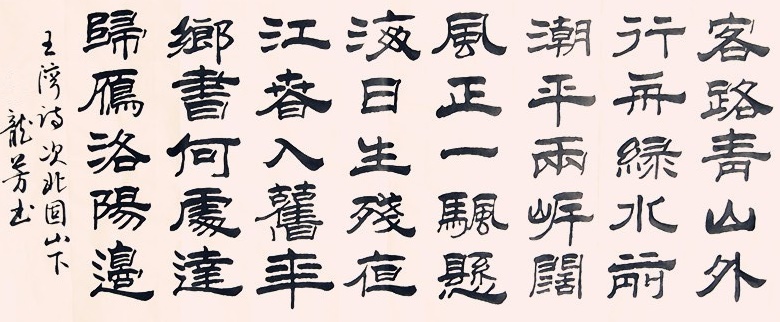 客路青山外
行舟綠水前
潮平兩岸闊
風正一颿懸
海日生殘夜
江春入舊年
鄉書何處達
歸雁洛陽邊
王灣詩次北固山下
龍芳書